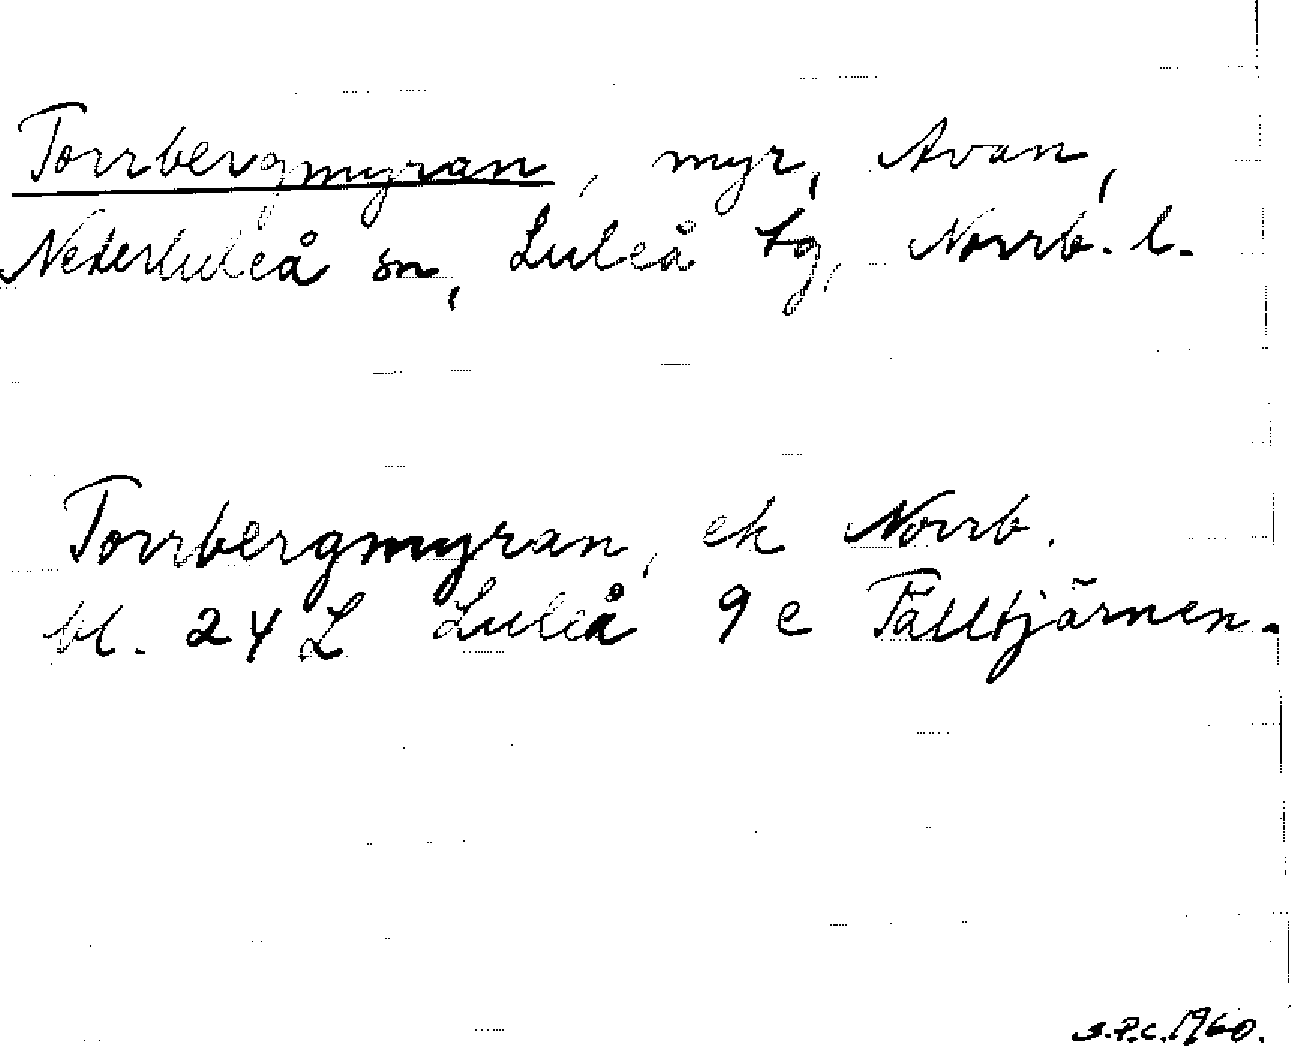 Torrbergmyran, myr, Avan,
Nederluleå sn, Luleå tg, Norrb. l.
Torrbergmyran, ek Norrb.
bl. 24 L Luleå 9 e Tälltjärnen.
S.P.C. 1960.